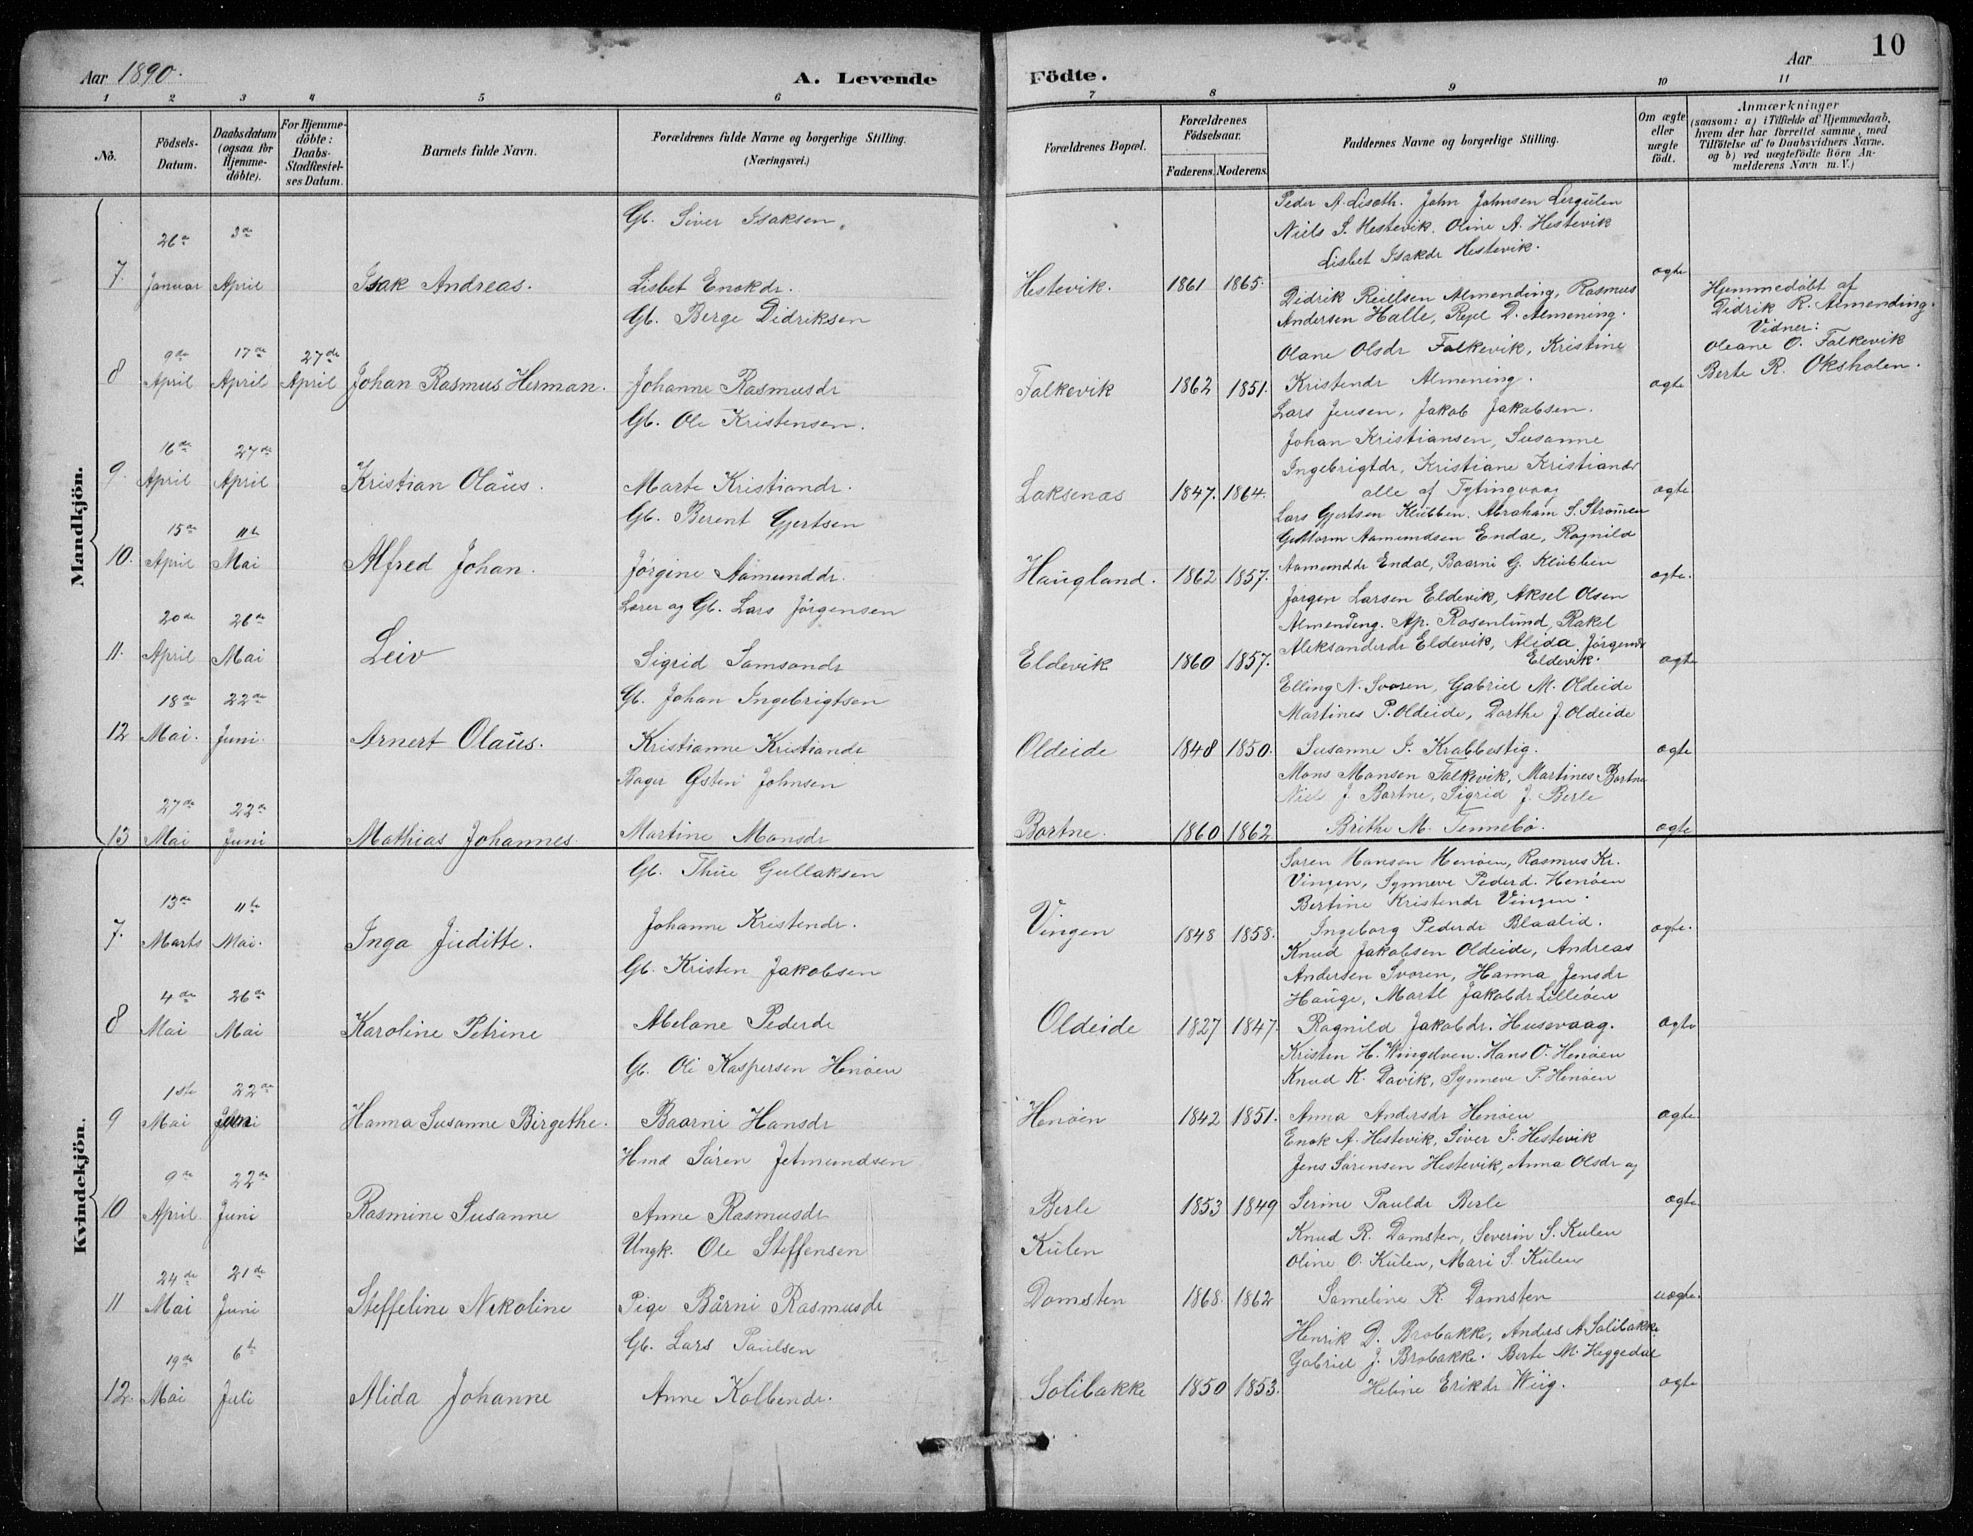 Aar 1890.
A. Levende Födte.
Aar
10
1 2 3 4 5 6 7 8 9 10 11
No.
Födsels-Datum.
Daabsdatum (ogsaa for Hjemme-döbte).
For Hjemme-döbte: Daabs-Stadfæstel-ses Datum.
Barnets fulde Navn.
Forældrenes fulde Navne og borgerlige Stilling. (Næringsvei.)
Forældrenes Bopæl.
Forældrenes Födselsaar.
Faderens. Moderens.
Faddernes Navne og borgerlige Stilling.
Om ægte eller uægte födt.
Anmærkninger
(saasom: a) i Tilfælde af Hjemmedaab,
hvem der har forrettet samme, med
Tilföielse af to Daabsvidners Navne.
og b) ved uægtefödte Börn An-
melderens Navn m. V.)
Mandkjön.
7. 26de Januar 3de April Isak Andreas.
Gb. Siver Isaksen,
Lisbet Enokdr.
Hestevik. 1861 1865.
Peder A. Liseth. John Johnsen Lergulen
Niels S. Hestevik. Oline A. Hestevik
Lisbet Isakdr Hestevik.
ægte
8 9de April 17de April 27de April Johan Rasmus Herman.
Gb. Berge Didriksen
Johanne Rasmusdr
Falkevik 1862 1851.
Didrik Reielsen Almending, Rasmus
Andersen Halle, Rejel D. Almening.
Olane Olsdr Falkevik, Kristine
Kristendr Almening.
ægte
Hjemmedøbt af
Didrik R. Almending.
Vidner:
Oleane O. Falkevik
Berte R. Oksholen.
9. 16de April 27de April Kristian Olaus.
Gb. Ole Kristensen.
Marte Kristiandr.
Laksenæs 1847. 1864.
Lars Jensen, Jakob Jakobsen.
Johan Kristiansen, Susanne
Ingebrigtdr, Kristiane Kristiandr
alle af Tytingvaag
ægte.
10. 15de April 11te Mai Alfred Johan.
Gb. Berent Gjertsen
Jørgine Aamunddr.
Haugland. 1862 1857.
Lars Gjertsen Klubben. Abraham S. Strømen
Guttorm Aamundsen Endal, Ragnild
Aamundde Endal, Baarni G. Klubben
ægte.
11. 20de April 26de Mai Leiv
Lærer og Gb. Lars Jørgensen
Sigrid Samsondr
Eldevik 1860 1857.
Jørgen Larsen Eldevik, Aksel Olsen
Almending. Ap. Rosenlund, Rakel
Aleksanderdr Eldevik, Alida Jørgendr
Eldevik.
ægte
12 18de Mai. 22de Juni. Arnert Olaus.
Gb. Johan Ingebrigtsen
Kristianne Kristiandr
Oldeide 1848 1850.
Elling N. Svoren, Gabriel M. Oldeide
Martines P. Oldeide, Dorthe J. Oldeide
Susanne I. Krabbestig.
ægte
13 27de Mai 22de Juni Mathias Johannes.
Bager Østen Johnsen
Martine Monsdr
Bortne. 1860 1862
Mons Monsen Falkevik, Martines Bortne
Niel J Bortne, Sigrid J. Berle
Brithe M. Tennebø.
ægte
Kvindekjön.
7. 13de Marts 11te Mai. Inga Juditte.
Gb. Thue Gullaksen
Johanne Kristendr.
Vingen 1848 1858.
Søren Hansen Henøen, Rasmus Kr.
Vingen, Synneve Pederd. Henøen
Bertine Kristendr Vingen.
Ingeborg Pederdr Blaalid.
ægte.
8 4de Mai 26de Mai Karoline Petrine
Gb. Kristen Jakobsen
Melane Pederdr
Oldeide 1827 1847.
Knud Jakobsen Oldeide, Andreas
Andersen Svoren, Hanna Jensdr
Hauge, Martl Jakobdr Lilleøen
Ragnild Jakobdr. Husevaag.
ægte
9 1ste Mai 22de Juni Hanna Susanne Birgethe.
Gb. Ole Kaspersen Henøen
Baarni Hansdr
Henøen 1842 1851.
Kristen H. Wingelven. Hans O. Henøen
Knud K. Davik, Synneve P. Henøen
Anna Andersdr Henøen
ægte.
10 9de April 22de Juni Rasmine Susanne
Hmd Søren Jetmundsen
Anne Rasmusdr
Berle 1853 1849
Enok A. Hestevik, Siver I. Hestevik
Jens Sørensen Hestevik, Anna Olsdr og
Serine Pauldr Berle
ægte
11 24de Mai 21de Juni Steffeline Nikoline
Ungk. Ole Steffensen
Pige Bårni Rasmusdr
Kulen
Domsten 1868. 1862
Knud R. Domsten, Severin S. Kulen
Oline O. Kulen, Mari S. Kulen
Sameline R. Domsten
uægte.
12. 19de Mai 6te Juli Alida Johanne
Gb. Lars Paulsen
Anne Kolbendr.
Solibakke 1850 1853.
Henrik D. Brobakke, Anders A Solibakke
Gabriel J. Brobakke. Berte M. Heggedal
Heline Erikdr Wiig.
ægte